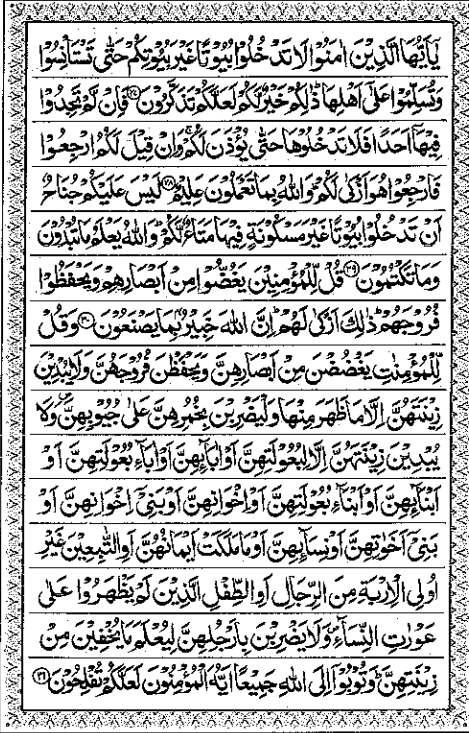 يٰۤاَيُّهَا الَّذِيۡنَ اٰمَنُوۡا لَا تَدۡخُلُوۡا بُيُوۡتًا غَيۡرَ بُيُوۡتِكُمۡ حَتّٰى تَسۡتَاۡنِسُوۡا
وَتُسَلِّمُوۡا عَلٰٓى اَهۡلِهَا ؕ ذٰلِكُمۡ خَيۡرٌ لَّكُمۡ لَعَلَّكُمۡ تَذَكَّرُوۡنَ ﴿۲۷﴾ فَاِنۡ لَّمۡ تَجِدُوۡا
فِيۡهَاۤ اَحَدًا فَلَا تَدۡخُلُوۡهَا حَتّٰى يُؤۡذَنَ لَكُمۡ ۚ وَاِنۡ قِيۡلَ لَكُمُ ارۡجِعُوۡا
فَارۡجِعُوۡا هُوَ اَزۡكٰى لَكُمۡ ؕ وَاللّٰهُ بِمَا تَعۡمَلُوۡنَ عَلِيۡمٌ ﴿۲۸﴾ لَيۡسَ عَلَيۡكُمۡ جُنَاحٌ
اَنۡ تَدۡخُلُوۡا بُيُوۡتًا غَيۡرَ مَسۡكُوۡنَةٍ فِيۡهَا مَتَاعٌ لَّكُمۡ ؕ وَاللّٰهُ يَعۡلَمُ مَا تُبۡدُوۡنَ
وَمَا تَكۡتُمُوۡنَ ﴿۲۹﴾ قُلۡ لِّلۡمُؤۡمِنِيۡنَ يَغُضُّوۡا مِنۡ اَبۡصَارِهِمۡ وَيَحۡفَظُوۡا
فُرُوۡجَهُمۡ ؕ ذٰلِكَ اَزۡكٰى لَهُمۡ ؕ اِنَّ اللّٰهَ خَبِيۡرٌۢ بِمَا يَصۡنَعُوۡنَ ﴿۳۰﴾ وَقُلۡ
لِّلۡمُؤۡمِنٰتِ يَغۡضُضۡنَ مِنۡ اَبۡصَارِهِنَّ وَيَحۡفَظۡنَ فُرُوۡجَهُنَّ وَلَا يُبۡدِيۡنَ
زِيۡنَتَهُنَّ اِلَّا مَا ظَهَرَ مِنۡهَا وَلۡيَضۡرِبۡنَ بِخُمُرِهِنَّ عَلٰى جُيُوۡبِهِنَّ ۪ وَلَا
يُبۡدِيۡنَ زِيۡنَتَهُنَّ اِلَّا لِبُعُوۡلَتِهِنَّ اَوۡ اٰبَآئِهِنَّ اَوۡ اٰبَآءِ بُعُوۡلَتِهِنَّ اَوۡ
اَبۡنَآئِهِنَّ اَوۡ اَبۡنَآءِ بُعُوۡلَتِهِنَّ اَوۡ اِخۡوَانِهِنَّ اَوۡ بَنِىۡۤ اِخۡوَانِهِنَّ اَوۡ
بَنِىۡۤ اَخَوٰتِهِنَّ اَوۡ نِسَآئِهِنَّ اَوۡ مَا مَلَكَتۡ اَيۡمَانُهُنَّ اَوِ التّٰبِعِيۡنَ غَيۡرِ
اُولِى الۡاِرۡبَةِ مِنَ الرِّجَالِ اَوِ الطِّفۡلِ الَّذِيۡنَ لَمۡ يَظۡهَرُوۡا عَلٰى
عَوۡرٰتِ النِّسَآءِ ۪ وَلَا يَضۡرِبۡنَ بِاَرۡجُلِهِنَّ لِيُعۡلَمَ مَا يُخۡفِيۡنَ مِنۡ
زِيۡنَتِهِنَّ ؕ وَتُوۡبُوۡۤا اِلَى اللّٰهِ جَمِيۡعًا اَيُّهَ الۡمُؤۡمِنُوۡنَ لَعَلَّكُمۡ تُفۡلِحُوۡنَ ﴿۳۱﴾